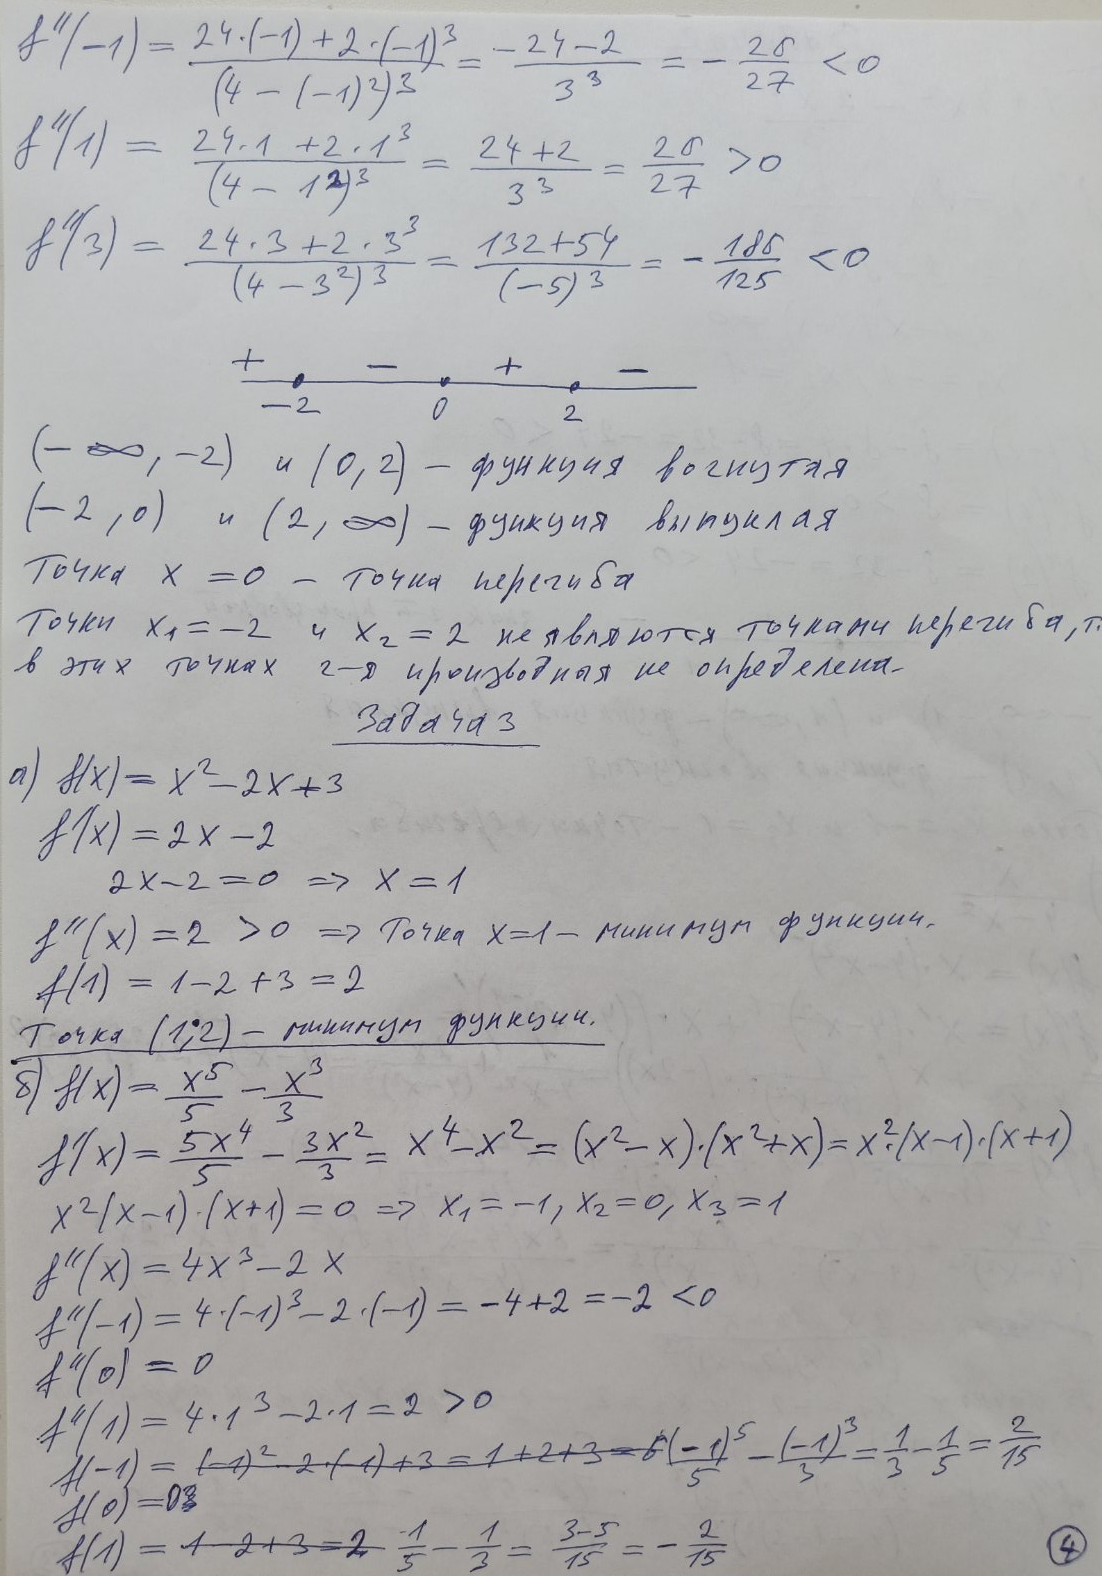 f''(-1) = (24·(-1) + 2·(-1)³)/(4 - (-1)²)³ = (-24-2)/3³ = -26/27 < 0
f''(1) = (24·1 + 2·1³)/(4 - 1²)³ = (24+2)/3³ = 26/27 > 0
f''(3) = (24·3 + 2·3³)/(4 - 3²)³ = (132+54)/(-5)³ = -186/125 < 0
+ − + −
-2 0 2
(-∞, -2) и (0, 2) – функция вогнутая
(-2, 0) и (2, ∞) – функция выпуклая
Точка x = 0 – точка перегиба
Точки x₁ = -2 и x₂ = 2 не являются точками перегиба, т.
в этих точках 2-я производная не определена.
Задача 3
а) f(x) = x² - 2x + 3
f'(x) = 2x - 2
2x - 2 = 0 => x = 1
f''(x) = 2 > 0 => Точка x=1 – минимум функции.
f(1) = 1 - 2 + 3 = 2
Точка (1;2) – минимум функции.
б) f(x) = x⁵/5 - x³/3
f'(x) = 5x⁴/5 - 3x²/3 = x⁴ - x² = (x² - x)·(x² + x) = x²·(x-1)·(x+1)
x²(x-1)·(x+1) = 0 => x₁ = -1, x₂ = 0, x₃ = 1
f''(x) = 4x³ - 2x
f''(-1) = 4·(-1)³ - 2·(-1) = -4+2 = -2 < 0
f''(0) = 0
f''(1) = 4·1³ - 2·1 = 2 > 0
f(-1) = (-1)² - 2·(-1) + 3 = 1+2+3 = 6 (-1)⁵/5 - (-1)³/3 = 1/3 - 1/5 = 2/15
f(0) = 0
f(1) = 1 - 2 + 3 = 2 1/5 - 1/3 = (3-5)/15 = -2/15
4